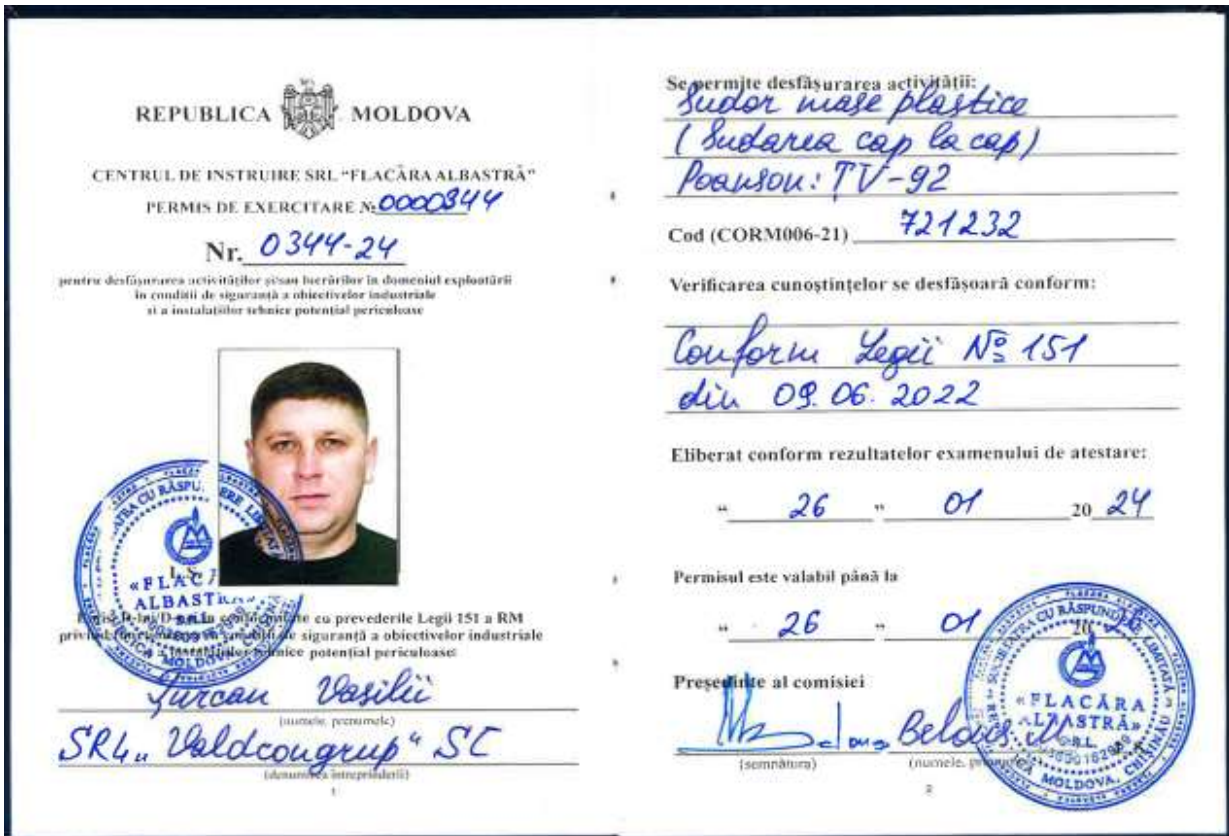 REPUBLICA MOLDOVA
CENTRUL DE INSTRUIRE SRL "FLACĂRA ALBASTRĂ"
PERMIS DE EXERCITARE № 0000344
Nr. 0344-24
pentru desfășurarea activităților și/sau lucrărilor în domeniul exploatării
în condiții de siguranță a obiectivelor industriale
și a instalațiilor tehnice potențial periculoase
L.Ș.
cu prevederile Legii 151 a RM
siguranță a obiectivelor industriale
tehnice potențial periculoase:
Țurcan Vasilii
(numele, prenumele)
SRL „Valdcongrup“ SC
(denumirea întreprinderii)
1
Se permite desfășurarea activității:
Sudor mase plastice
(Sudarea cap la cap)
Poanson: TV-92
Cod (CORM006-21) 721232
Verificarea cunoștințelor se desfășoară conform:
Conform Legii № 151
din 09.06.2022
Eliberat conform rezultatelor examenului de atestare:
“ 26 ” 01 20 24
Permisul este valabil până la
“ 26 ” 01 20 26
Președinte al comisiei
Belous M
(semnătura) (numele,
2
«FLACĂRA
ALBASTRĂ»
S.R.L.